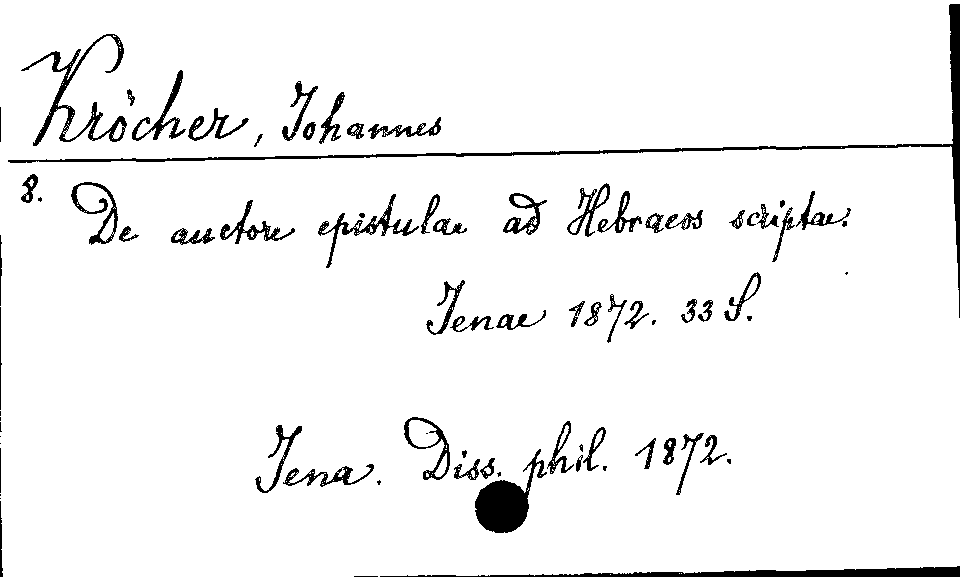 Kröcher, Johannes
8. De auctore epistulae ad Hebraeos scriptae.
Jenae 1872. 33 S.
Jena. Diss. phil. 1872.